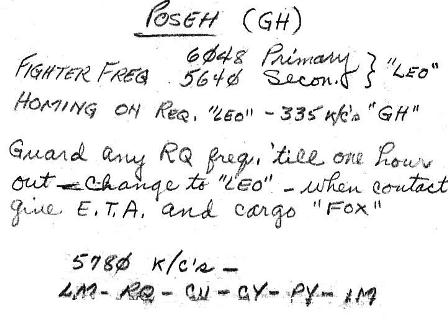 POSEH (GH)
FIGHTER FREQ 6Ø48 Primary } "LEO"
564Ø Second.
HOMING ON REQ. "LEO" - 335 K/C's "GH"
Guard any RQ freq. 'till one hour
out - change to "LEO" - when contact
give E.T.A. and cargo "FOX"
578Ø K/C's -
LM - RQ - CU - GY - PY - IM